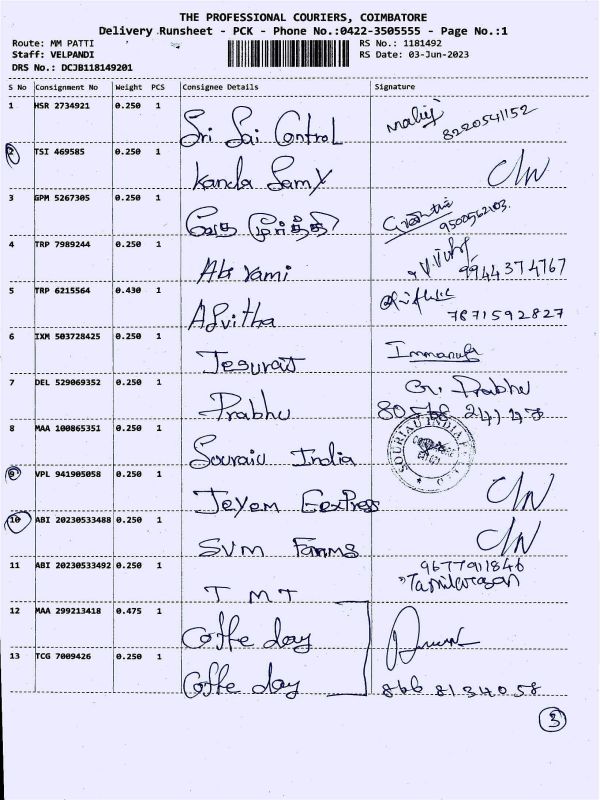 THE PROFESSIONAL COURIERS, COIMBATORE
Delivery Runsheet - PCK - Phone No.:0422-3505555 - Page No.:1
Route: MM PATTI RS No.: 1181492
Staff: VELPANDI RS Date: 03-Jun-2023
DRS No.: DCJB118149201
S No Consignment No Weight PCS Consignee Details Signature
1 HSR 2734921 0.250 1
Sri Sai Control 8220541152
2 TSI 469585 0.250 1
Kanda Samy C/N
3 GPM 5267305 0.250 1
வேத மூர்த்தி 9500562103.
4 TRP 7989244 0.250 1
Abi rami 9944374767
5 TRP 6215564 0.430 1
Advitha 7871592827
6 IXM 503728425 0.250 1
Jesuraj Immanuel
7 DEL 529069352 0.250 1 G. Prabhu
Prabhu
8 MAA 100865351 0.250 1
Souraiu India
9 VPL 941905058 0.250 1
Jeyem Eexpress C/N
10 ABI 20230533488 0.250 1
SVM Farms C/N
11 ABI 20230533492 0.250 1 9677911846
T M T Tamilarasan
12 MAA 299213418 0.475 1
Coffe day
13 TCG 7009426 0.250 1
Coffe day 866 8134058
3